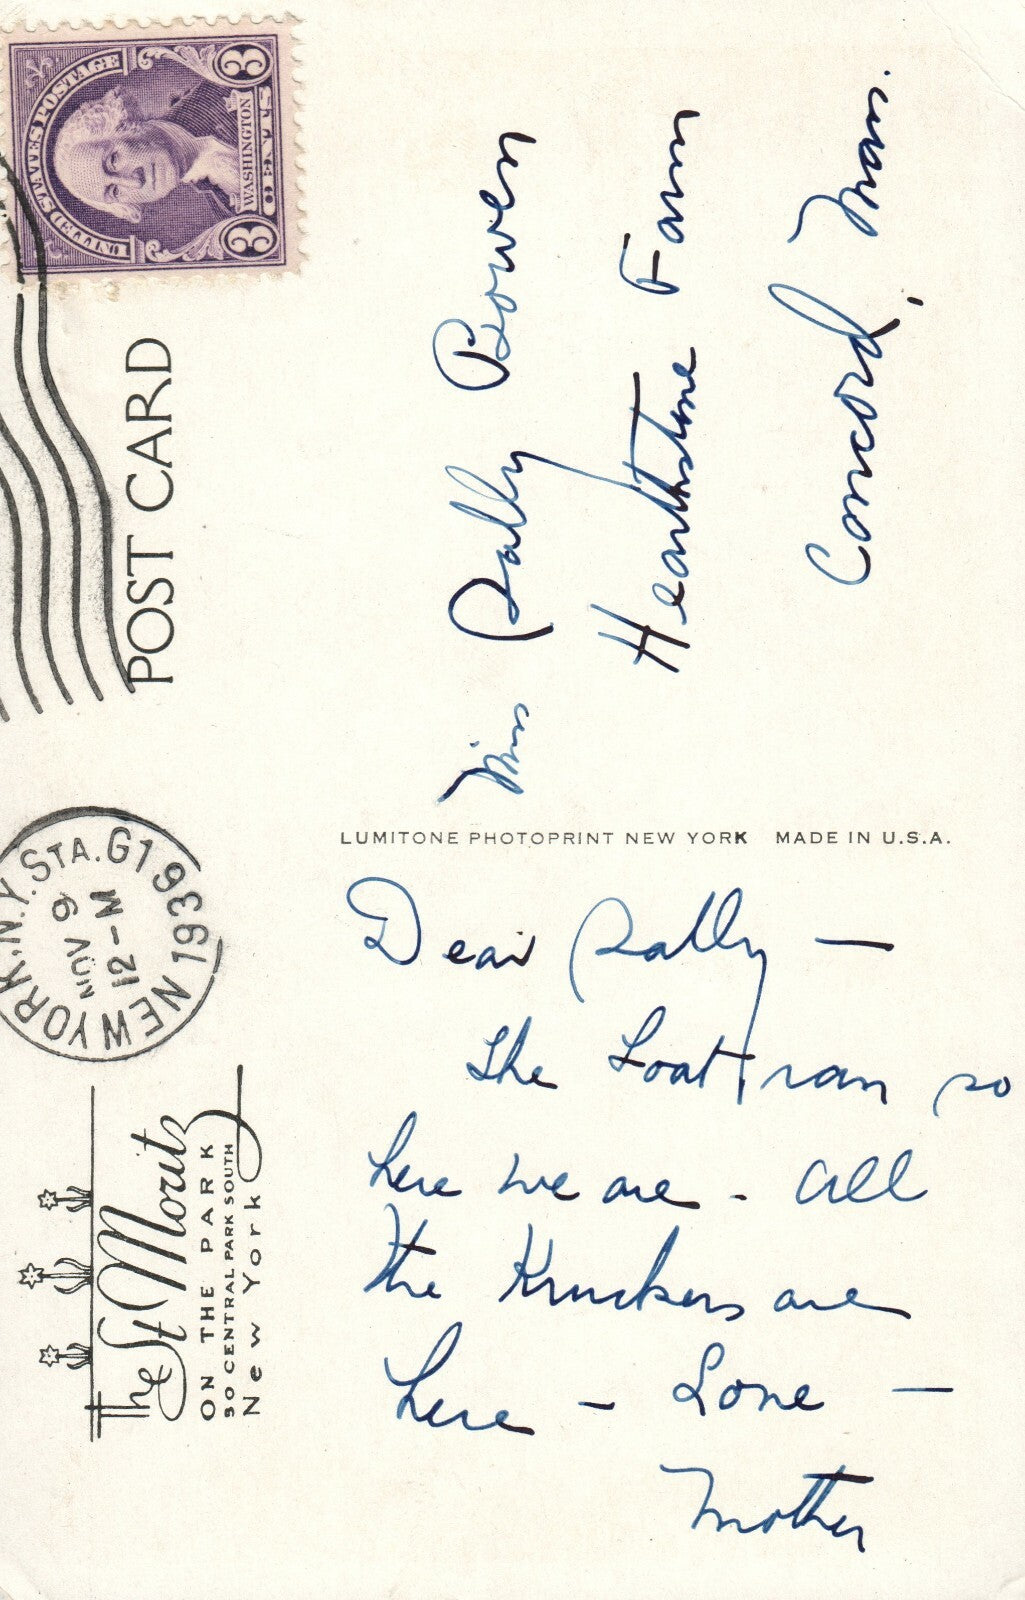 The St Moritz
ON THE PARK
50 CENTRAL PARK SOUTH
New York
NEW YORK, N.Y. STA. G1 1936
NOV 9
12-M
POST CARD
UNITED STATES POSTAGE
3 WASHINGTON 3
CENTS
LUMITONE PHOTOPRINT NEW YORK MADE IN U.S.A.
Dear Sally —
The boat ran so
here we are - all
the Kruckers are
here - Love -
Mother
Miss Sally Bowen
Hearthstone Farm
Concord, Mass.